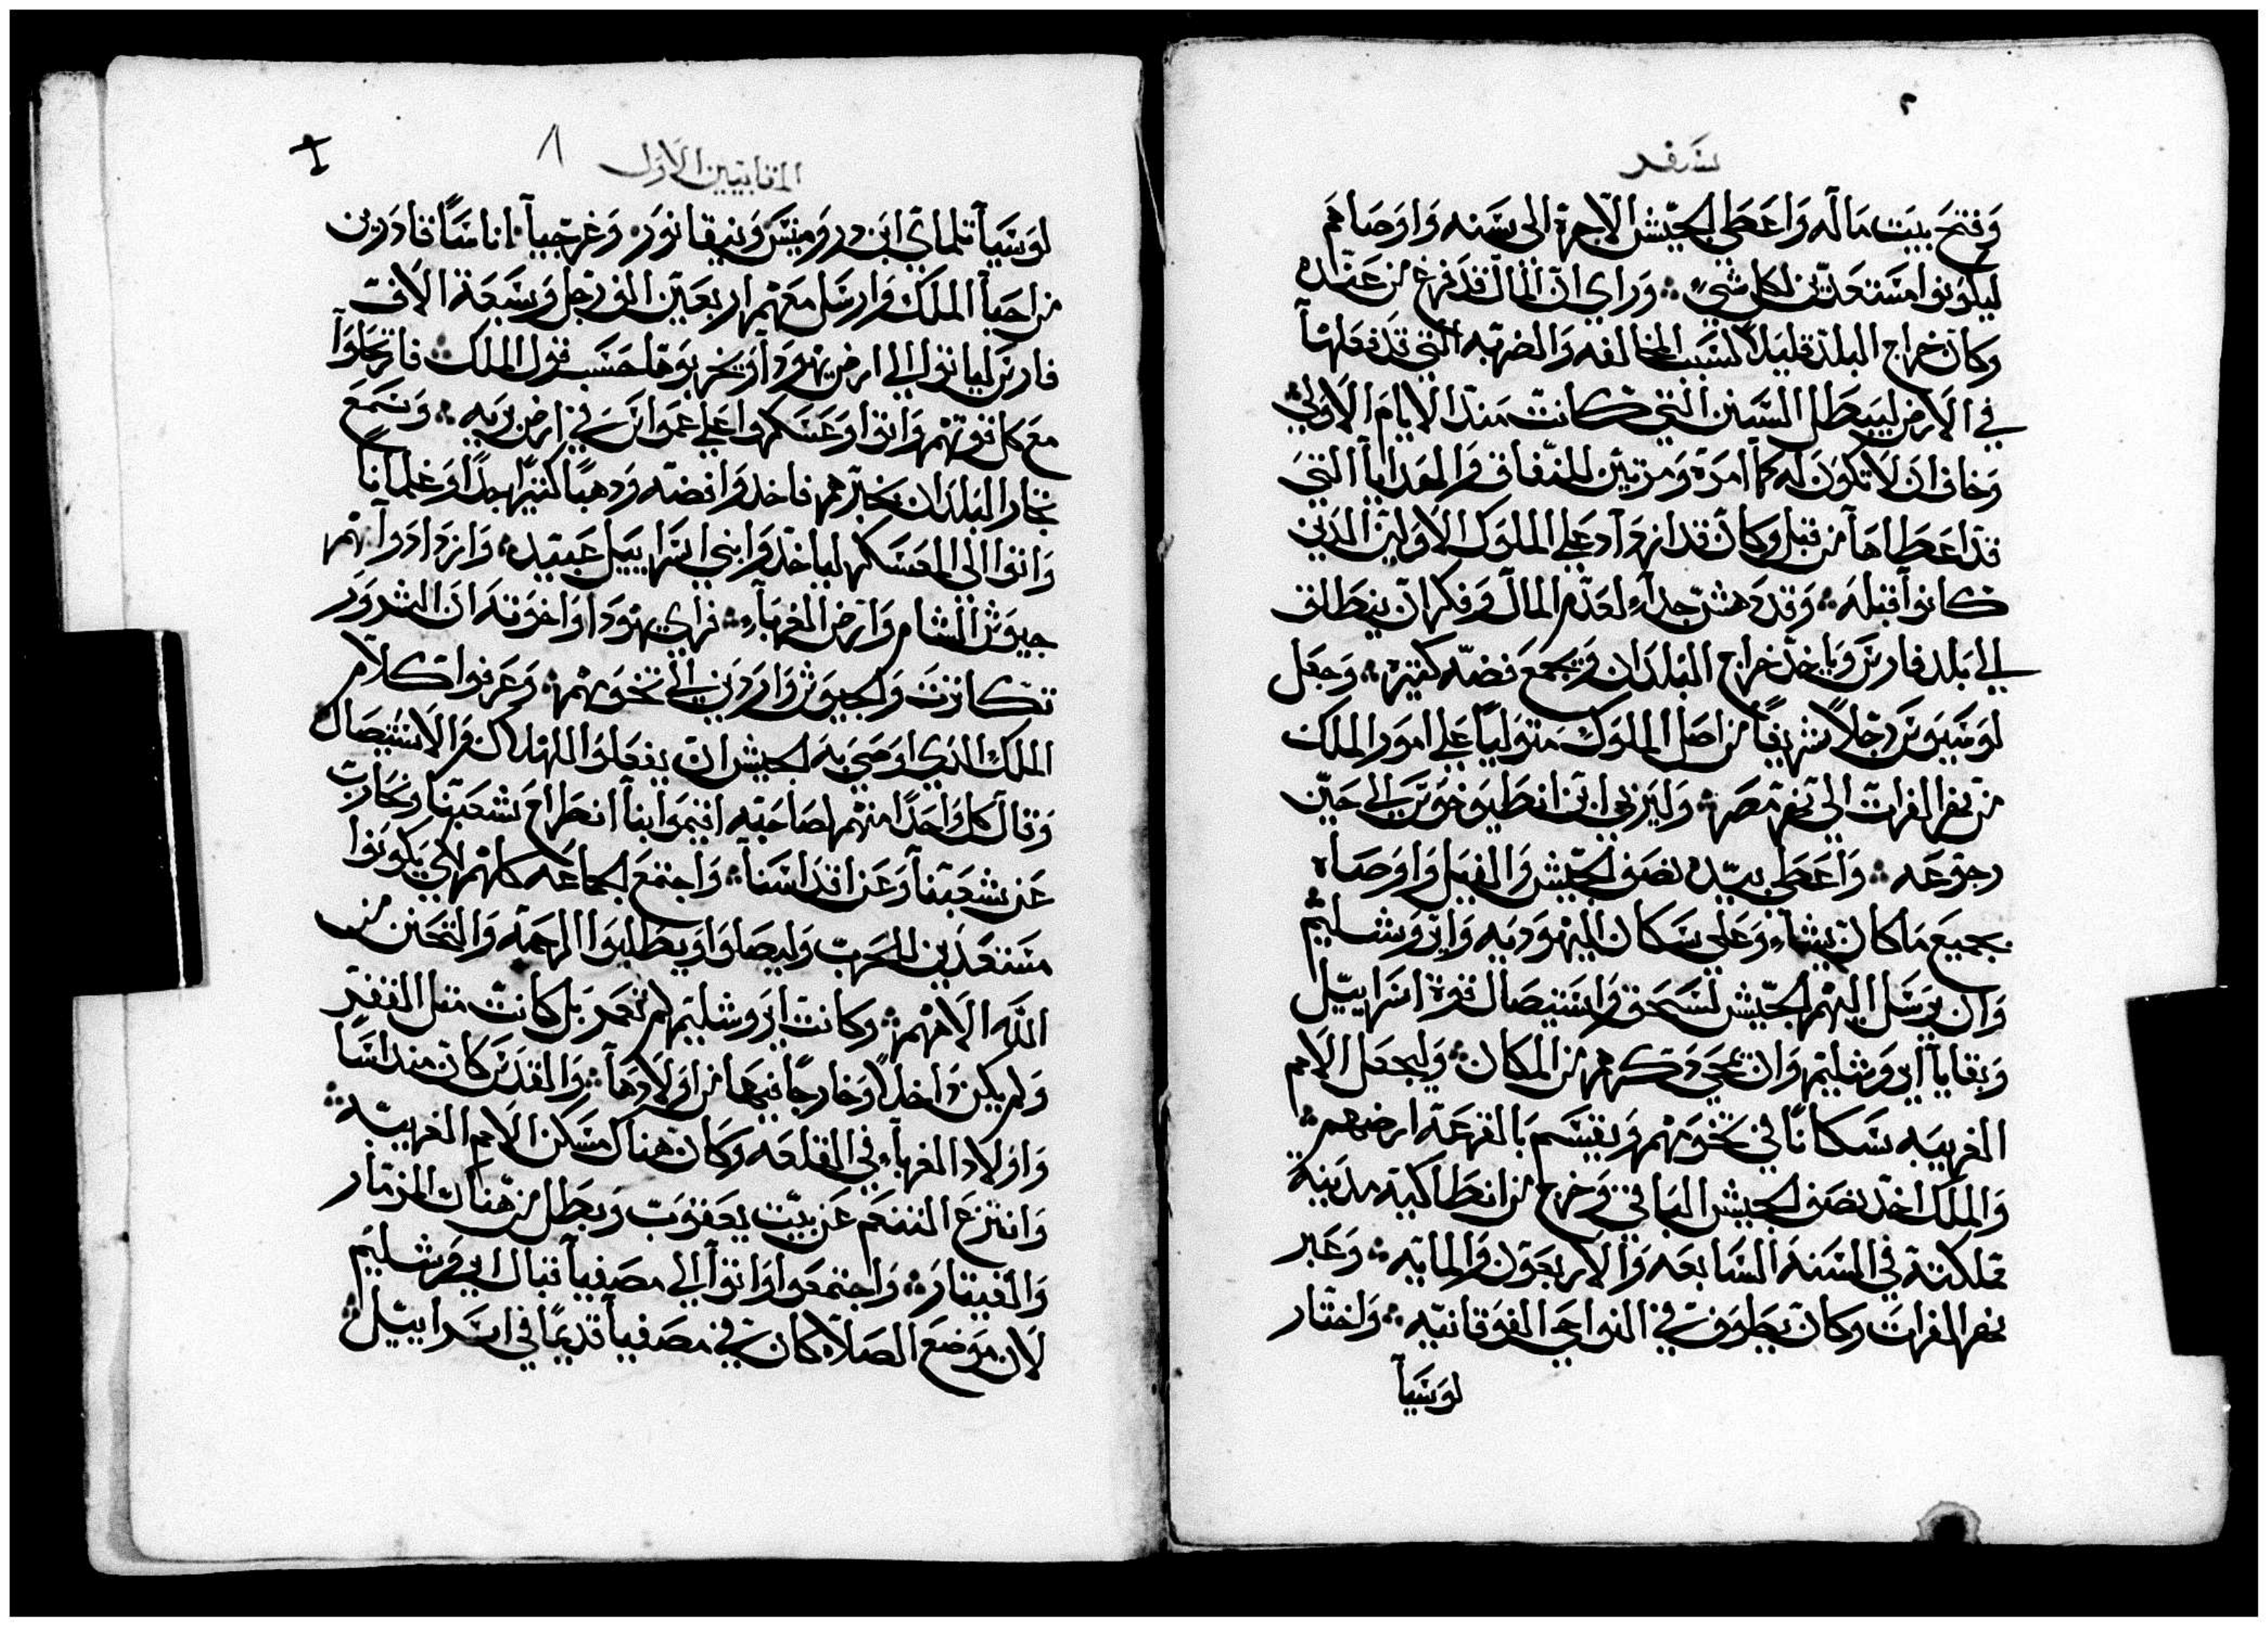 سفر
وفتح بيت ماله واعطي الجيش الاجرة الى سنه واوصاهم
ليكونوا مستعدين لكل شيء وراي ان المال قد فرغ من عنده
وكان خراج البلد قليلاً لسبب المخالفه والضربه التي قد فعلها
في الارض ليبطل السنن التي كانت منذ الايام الاولي
وخاف ان لا تكون له كما مرة ومرتين للنفاق والهدايا التي
قد اعطاها من قبل وكان قد ازواد علي الملوك الاولين الذين
كانوا قبله وقد دهش جداً لعدم المال وفكر ان ينطلق
الي بلد فارس وياخذ خراج البلدان ويجمع فضه كثيره وجعل
لوسيوس رجلاً شريفاً من اصل الملوك متولياً علي امور الملك
من نهر الفرات الي نهر مصر وليربي ابن انطيوخوس الي حين
رجوعه واعطي بيده نصف الجيش والفيل واوصاه
بجميع ما كان يشاء وعلي سكان اليهوديه واوروشليم
وان يرسل اليهم الجيش لسحق واستيصال قوة اسراييل
وبقايا اوروشليم وان يمحي ذكرهم من المكان وليجعل الامم
الغريبه سكاناً في تخومهم ويقسم بالقرعة ارضهم
والملك اخذ نصف الجيش الباقي وخرج من انطاكيه مدينة
مملكته في السنة السابعه والاربعون والمايه وعبر
نهر الفرات وكان يطوف في النواحي الفوقانيه واختار
لوسيا
المقابيين الاول
٨
لوسيا تلماي ابن درومينس ونيقانور وغرجيا اناساً قادرين
من احبا الملك وارسل معهم اربعين الف رجل وسبعة الاف
فارس لياتوا الي ارض يهودا ويخربوها حسب قول الملك فارتحلوا
مع كل قوتهم واتوا وعسكروا علي عمواس في ارض بريه وسمع
تجار البلدان بخبرهم فاخذوا فضه ودهباً كثيراً جداً وغلماناً
واتوا الي المعسكر لياخذوا بني اسراييل عبيد وازدادوا بهم
جيوش الشام وارض الغرباء فراي يهودا واخوته ان الشرور
تكاثرت والجيوش واردين الي تخومهم وعرفوا كلام
الملك الذي اوصي به الجيش ان يفعلوا الهلاك والاستيصال
وقال كل واحداً منهم لصاحبه اقيموا بنا انطراح شعبنا ونحارب
عن شعبنا وعن اقداسنا واجتمع الجماعه كلهم لكي يكونوا
مستعدين للحرب وليصلوا ويطلبوا الرحمة والتحنن من
الله الاههم وكانت اوروشليم لم تعمر بل كانت مثل القفر
ولم يكن داخلاً وخارجاً فيها من اولادها والمقدس كان منداساً
واولاد الغرباء في القلعه وكان هناك مسكن الامم الغريبه
وانتزع التنعم عن بيت يعقوب وبطل من هناك المزمار
والقيثار واجتمعوا واتوا الي مصفيا قبال اوروشليم
لان موضع الصلاه كان في مصفيا قديماً في اسراييل